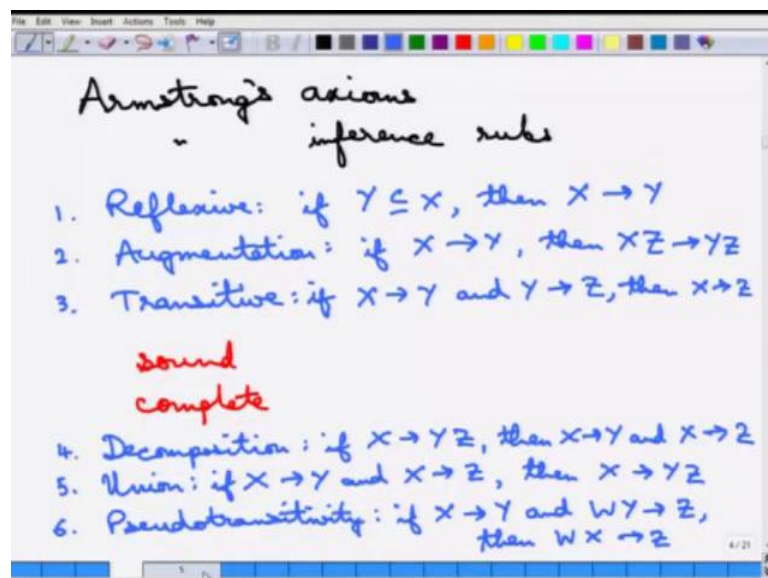 File Edit View Insert Actions Tools Help
Armstrong's axioms
" inference rules
1. Reflexive: if Y ⊆ X, then X → Y
2. Augmentation: if X → Y, then XZ → YZ
3. Transitive: if X → Y and Y → Z, then X → Z
sound
complete
4. Decomposition: if X → YZ, then X → Y and X → Z
5. Union: if X → Y and X → Z, then X → YZ
6. Pseudotransitivity: if X → Y and WY → Z,
then WX → Z
4/21
5